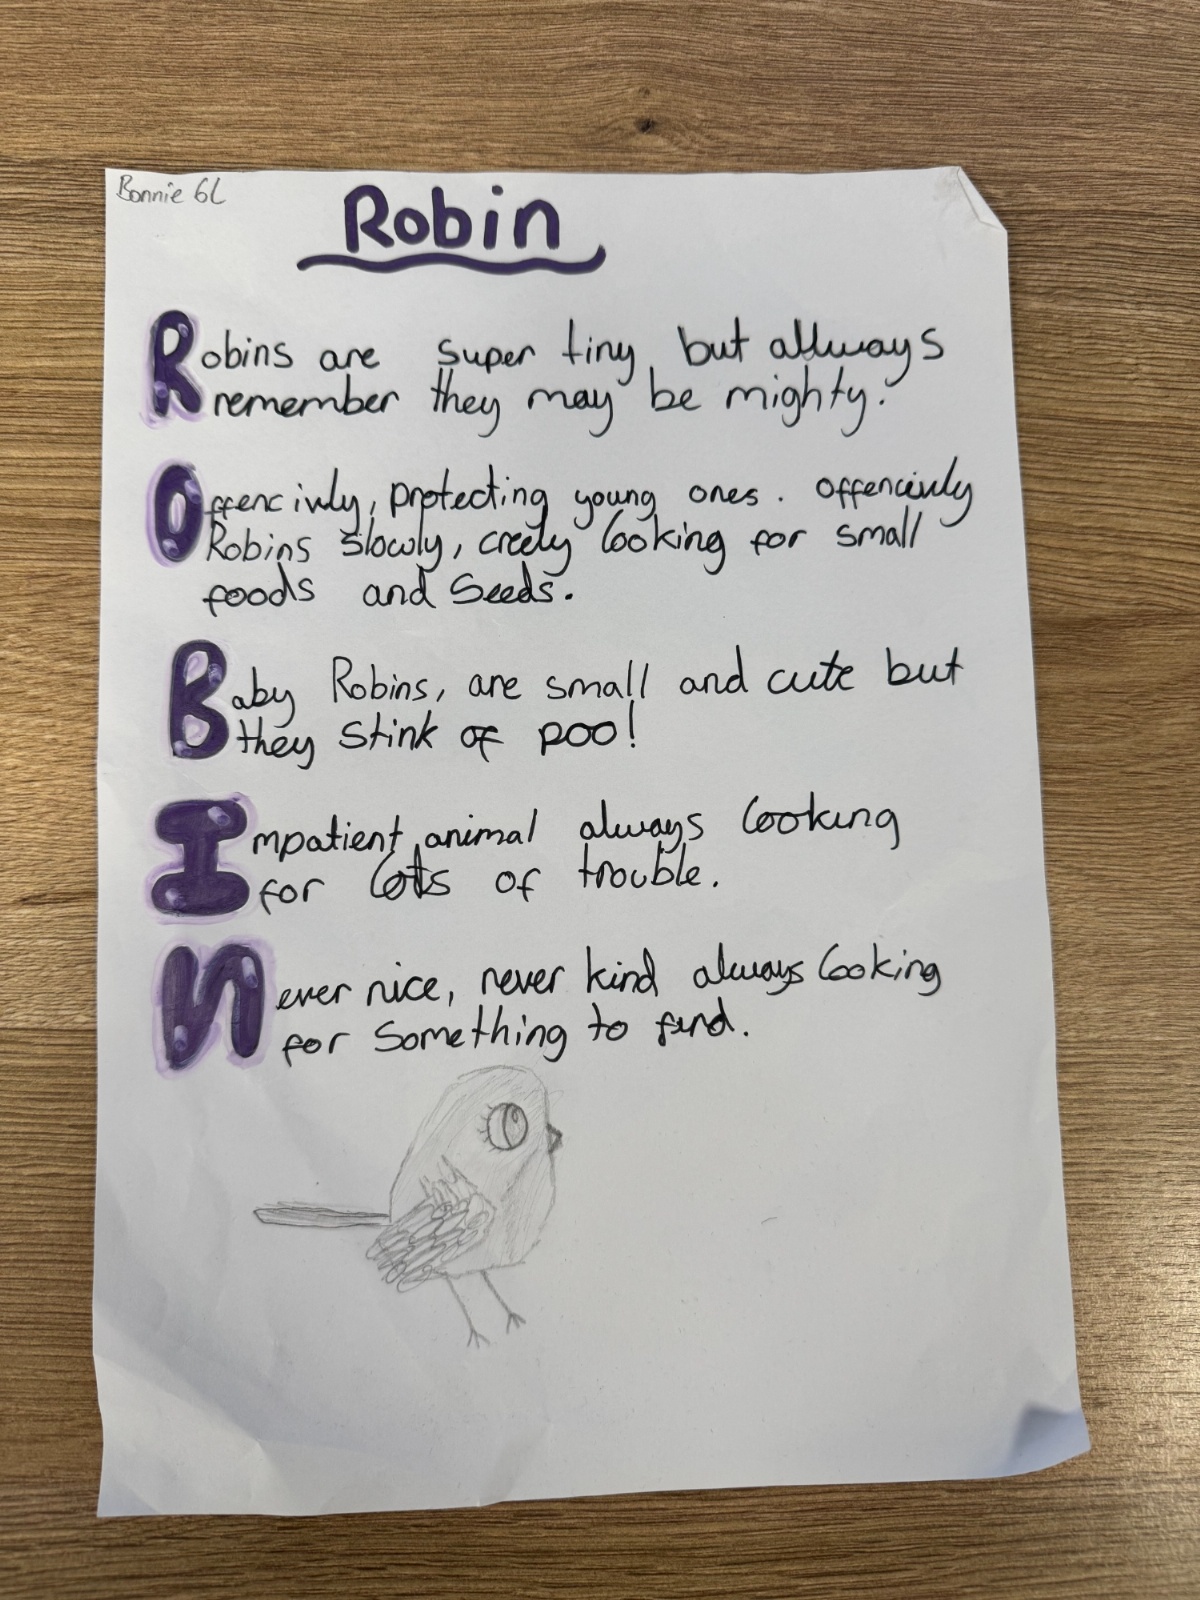 Bonnie 6L
Robin
Robins are super tiny but allways
remember they may be mighty.
Offencivly, protecting young ones. Offencivly
Robins slowly, creely looking for small
foods and Seeds.
Baby Robins, are small and cute but
they stink of poo!
Impatient, animal always looking
for lots of trouble.
Never nice, never kind always looking
for something to find.